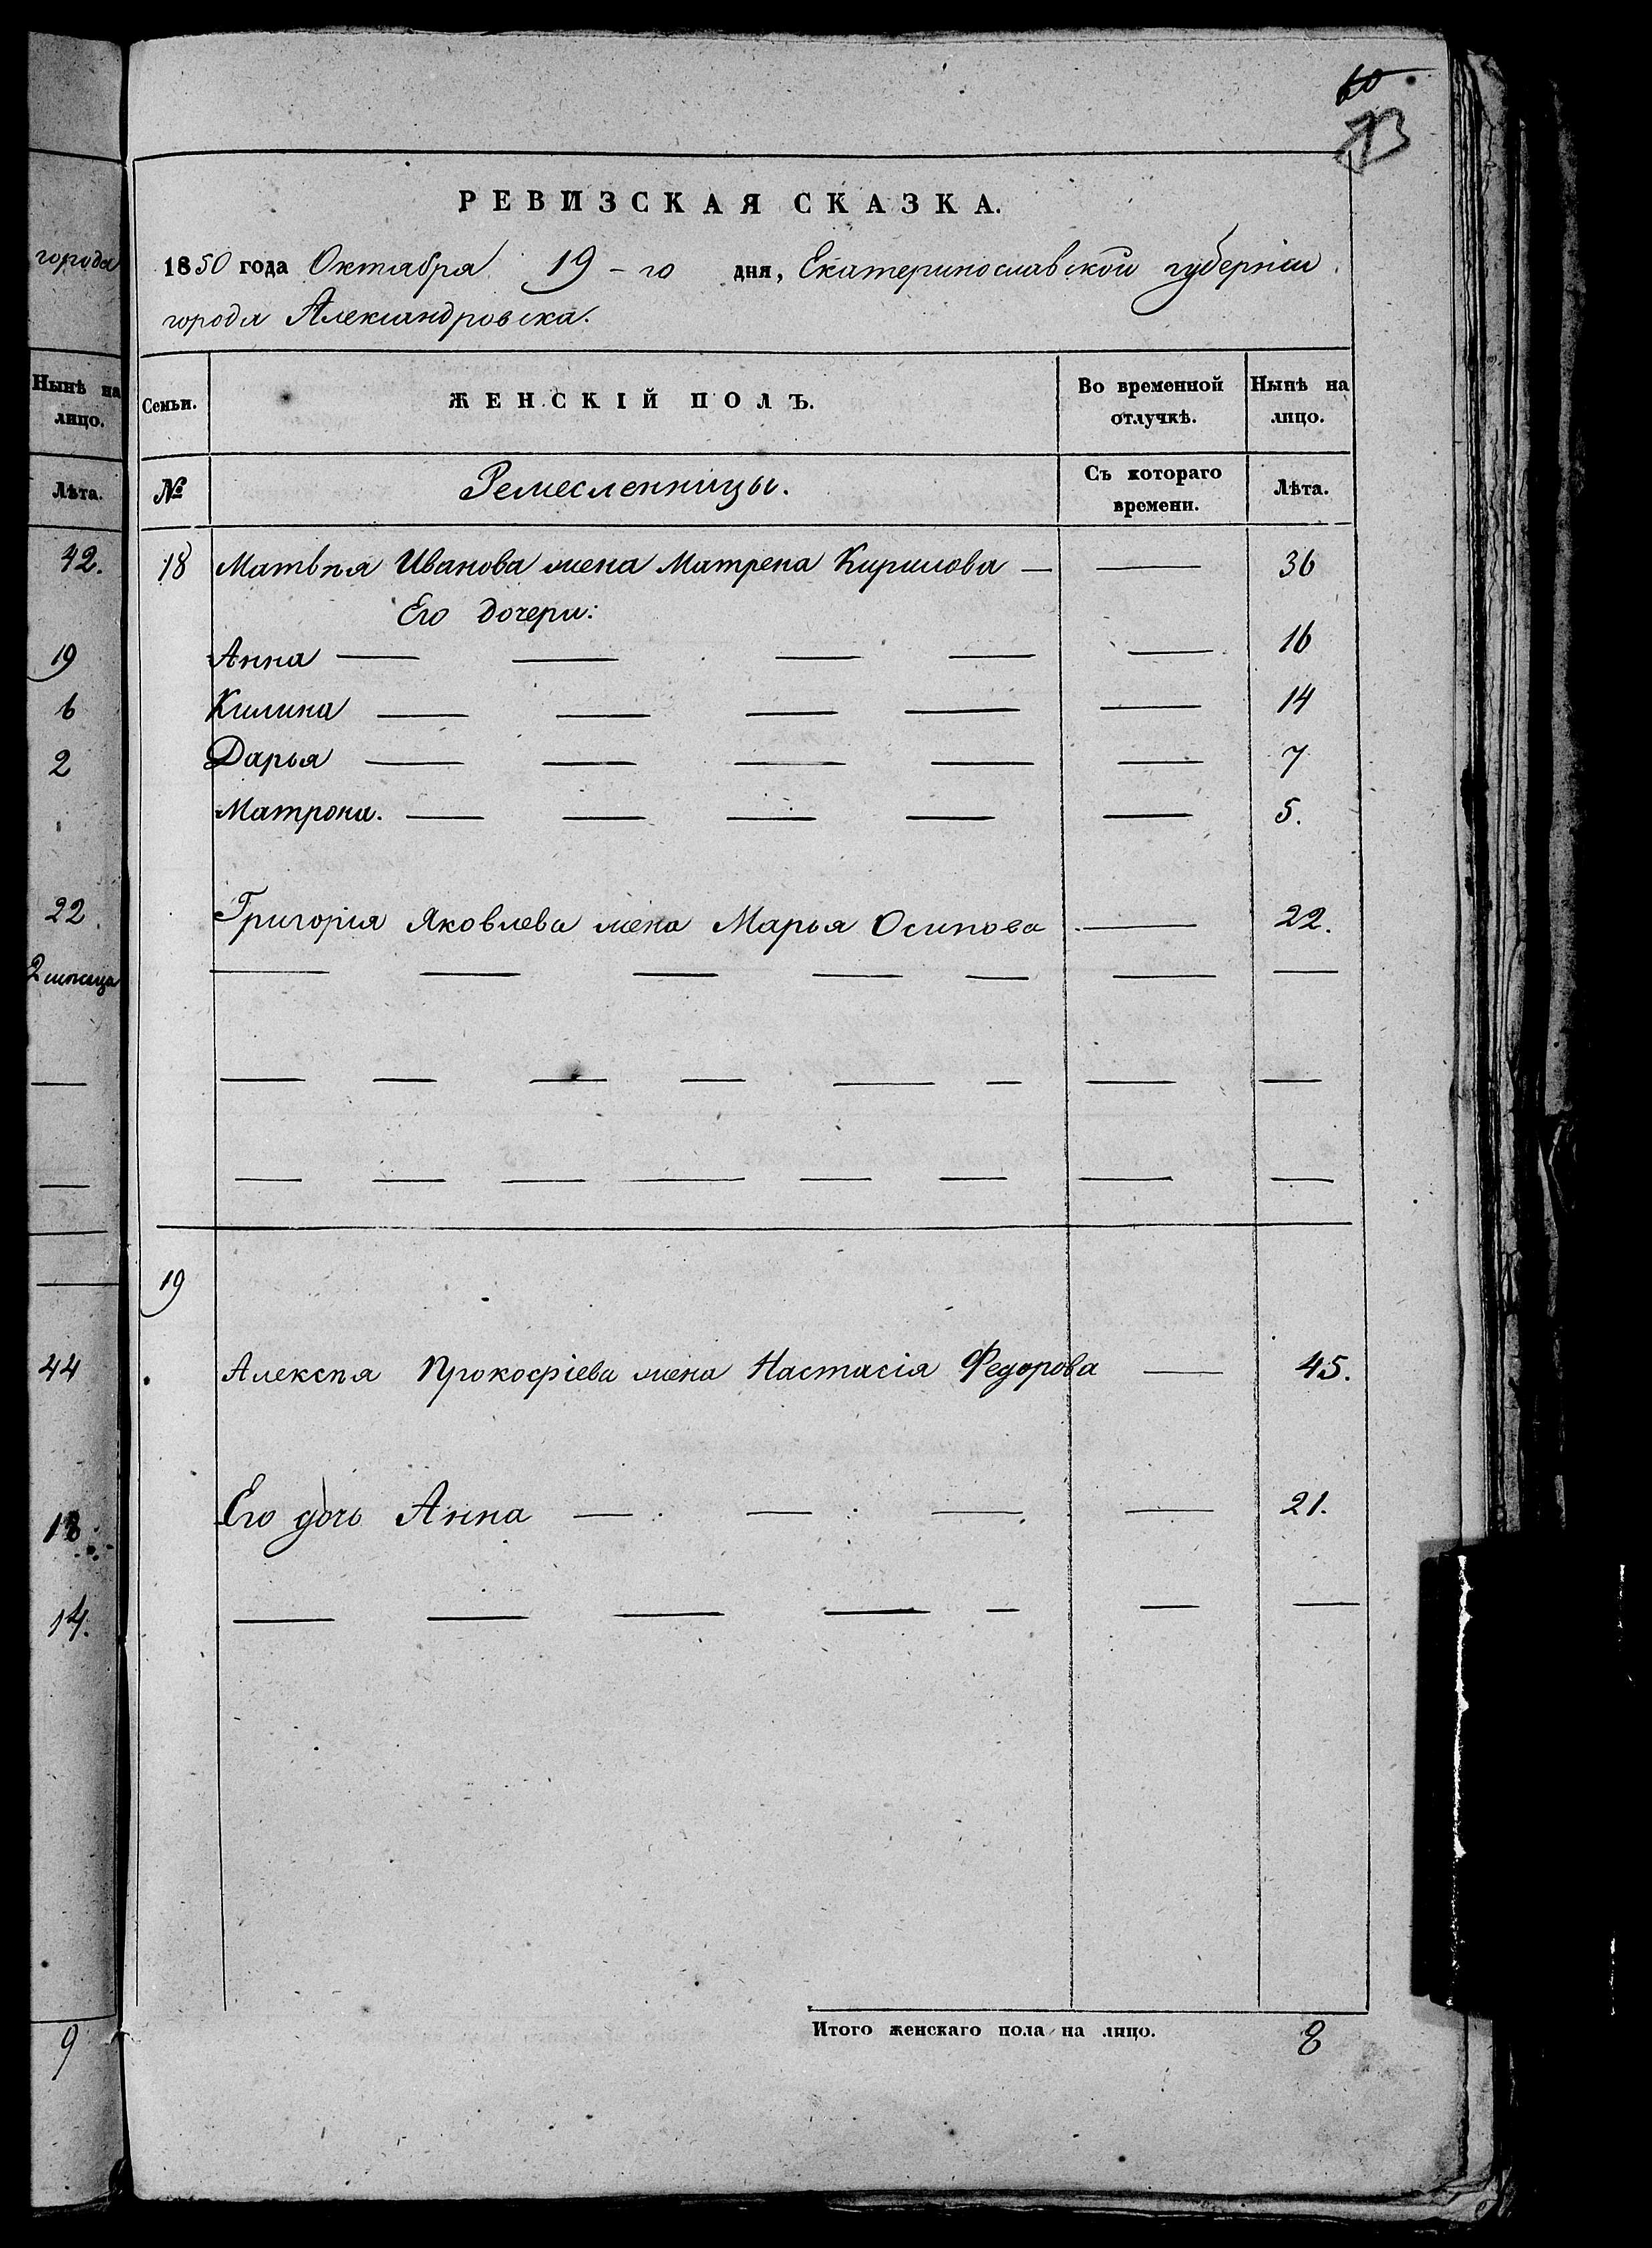 60
73
города
Нынѣ на
лицо.
Лѣта.
42.
19
6
2
22.
2 мѣсяца
44
18
14.
9
РЕВИЗСКАЯ СКАЗКА.
1850 года Октября 19-го дня, Екатеринославской губерніи
города Александровска.
Семьи. ЖЕНСКІЙ ПОЛЪ. Во временной отлучкѣ. Нынѣ на лицо.
№ Ремесленницы. Съ котораго времени. Лѣта.
18 Матвѣя Иванова жена Матрена Кирилова — — 36
Его дочери:
Анна — — — — — 16
Килина — — — — — 14
Дарья — — — — — 7
Матрона. — — — — — 5.
Григорія Яковлева жена Марья Осипова — 22.
— — — — — — —
— — — — — — — —
— — — — — — — —
19
Алексѣя Прокофіева жена Настасія Федорова — 45.
Его дочь Анна — — — — 21.
— — — — — — —
Итого женскаго пола на лицо. 8